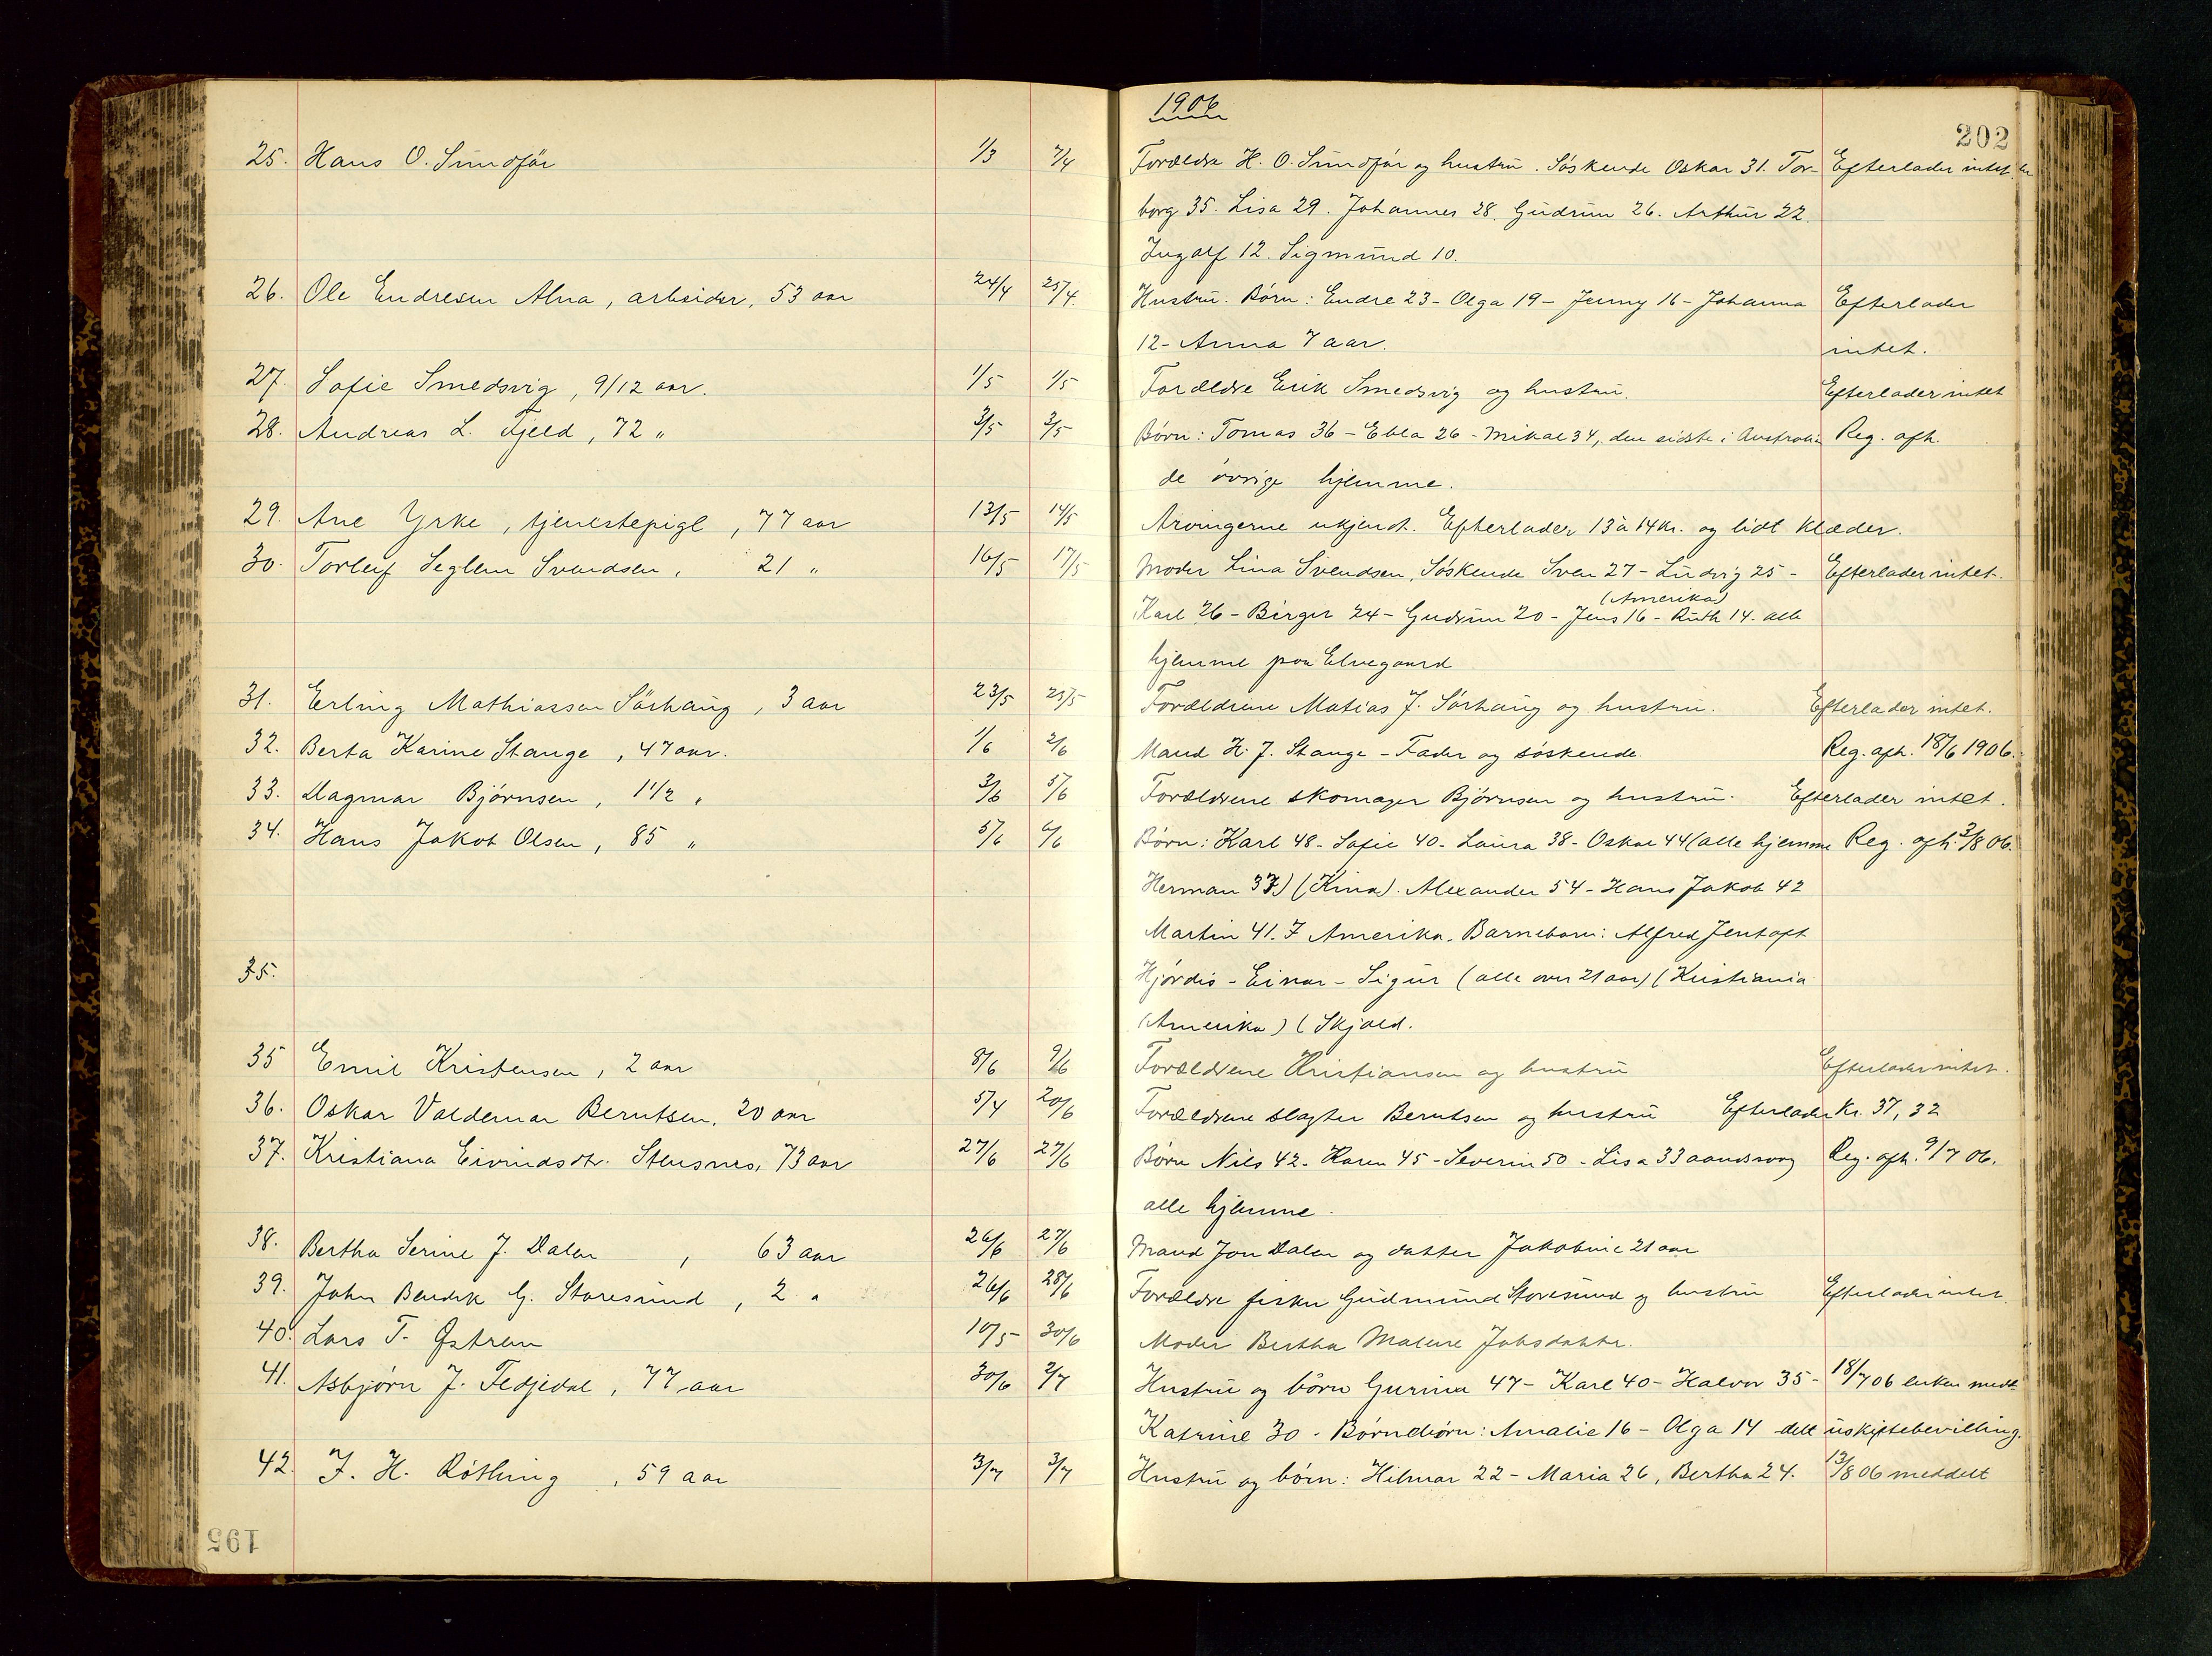 1906
202
25. Hans O. Sundför 1/3 7/4 Forældre H. O. Sundför og hustru. Söskende Oskar 31. Tor- Efterlader intet
borg 35. Lisa 29. Johannes 28. Gudrun 26. Arthur 22.
Ingolf 12. Sigmund 10.
26. Ole Endresen Alna, arbeider, 53 aar 24/4 25/4. Hustru. Börn: Endre 23 - Olga 19 - Jenny 16 - Johanna Efterlader
12 - Anna 7 aar. intet.
27. Sofie Smedsvig, 9/12 aar. 1/5 1/5 Forældre Erik Smedsvig og hustru. Efterlader intet
28. Andreas L. Fjeld, 72 " 3/5 3/5 Börn: Tomas 36 - Ebla 26 - Mikal 34, den sidste i Australien Reg. afh.
de övrige hjemme.
29. Ane Yrke, tjenestepige, 77 aar 13/5 14/5 Arvingerne ukjendt. Efterlader 13 à 14 kr. og lidt klæder.
30. Torleif Seglem Svendsen, 21 " 16/5 17/5 Moder Lina Svendsen, Söskende Sven 27 - Ludvig 25 - Efterlader intet.
(Amerika)
Karl 26 - Birger 24 - Gudrun 20 - Jens 16 - Ruth 14. alle
hjemme paa Elvegaard
31. Erling Mathiassen Sörhaug, 3 aar 23/5 25/5 Forældrene Matias J. Sörhaug og hustru. Efterlader intet.
32. Berta Karine Stange, 47 aar. 1/6 2/6 Mand H. J. Stange - Fader og söskende. Reg. afh. 18/6 1906.
33. Dagmar Björnsen, 1 1/2 " 3/6 5/6 Forældrene skomager Björnsen og hustru. Efterlader intet.
34. Hans Jakob Olsen, 85 " 5/6 6/6 Börn: Karl 48 - Sofie 40 - Laura 38 - Oskar 44 (alle hjemme Reg. afh. 3/8 06.
Herman 37) (Kina). Alexander 54 - Hans Jakob 42
Martin 41. I Amerika. Barnebarn: Alfred Jentoft
35. Hjördis - Einar - Sigur (alle over 21 aar) (Kristiania
(Amerika) (Skjold.
35 Emil Kristensen, 2 aar 8/6 9/6 Forældrene Kristiansen og hustru Efterlader intet.
36. Oskar Valdemar Berntsen, 20 aar 5/4 20/6 Forældrene slagter Berntsen og hustru Efterlader Kr. 37,32
37. Kristiana Eivindsdtr. Stensnes, 73 aar 27/6 27/6 Börn Nils 42 - Karen 45 - Severin 50 - Lisa 33 aandssvag Reg. afh. 9/7 06.
alle hjemme.
38. Bertha Serine J. Dalen, 63 aar 26/6 27/6 Mand Jon Dalen og datter Jakobine 21 aar
39. John Bendik G. Storesund, 2 " 26/6 28/6 Forældre fisker Gudmund Storesund og hustru Efterlader intet.
40. Lars T. Östrem 10/5 30/6 Moder Bertha Malene Jobsdatter.
41. Asbjörn J. Fedjedal, 77 aar 30/6 2/7 Hustru og börn Gurina 47 - Karl 40 - Halvor 35 - 18/7 06 enken medd-
Katrine 30 - Börnebörn: Amalie 16 - Olga 14 delt uskiftebevilling.
42. J. H. Röthing, 59 aar 3/7 3/7 Hustru og börn: Hilmar 22 - Maria 26, Bertha 24. 13/8 06 meddelt
195